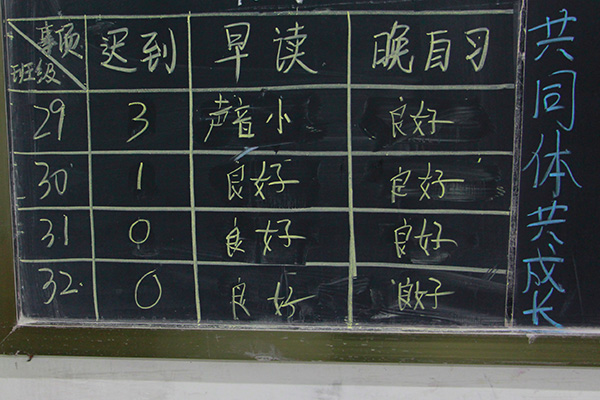 事项 班级 迟到 早读 晚自习
29 3 声音小 良好
30 1 良好 良好
31 0 良好 良好
32 0 良好 良好
共同体共成长